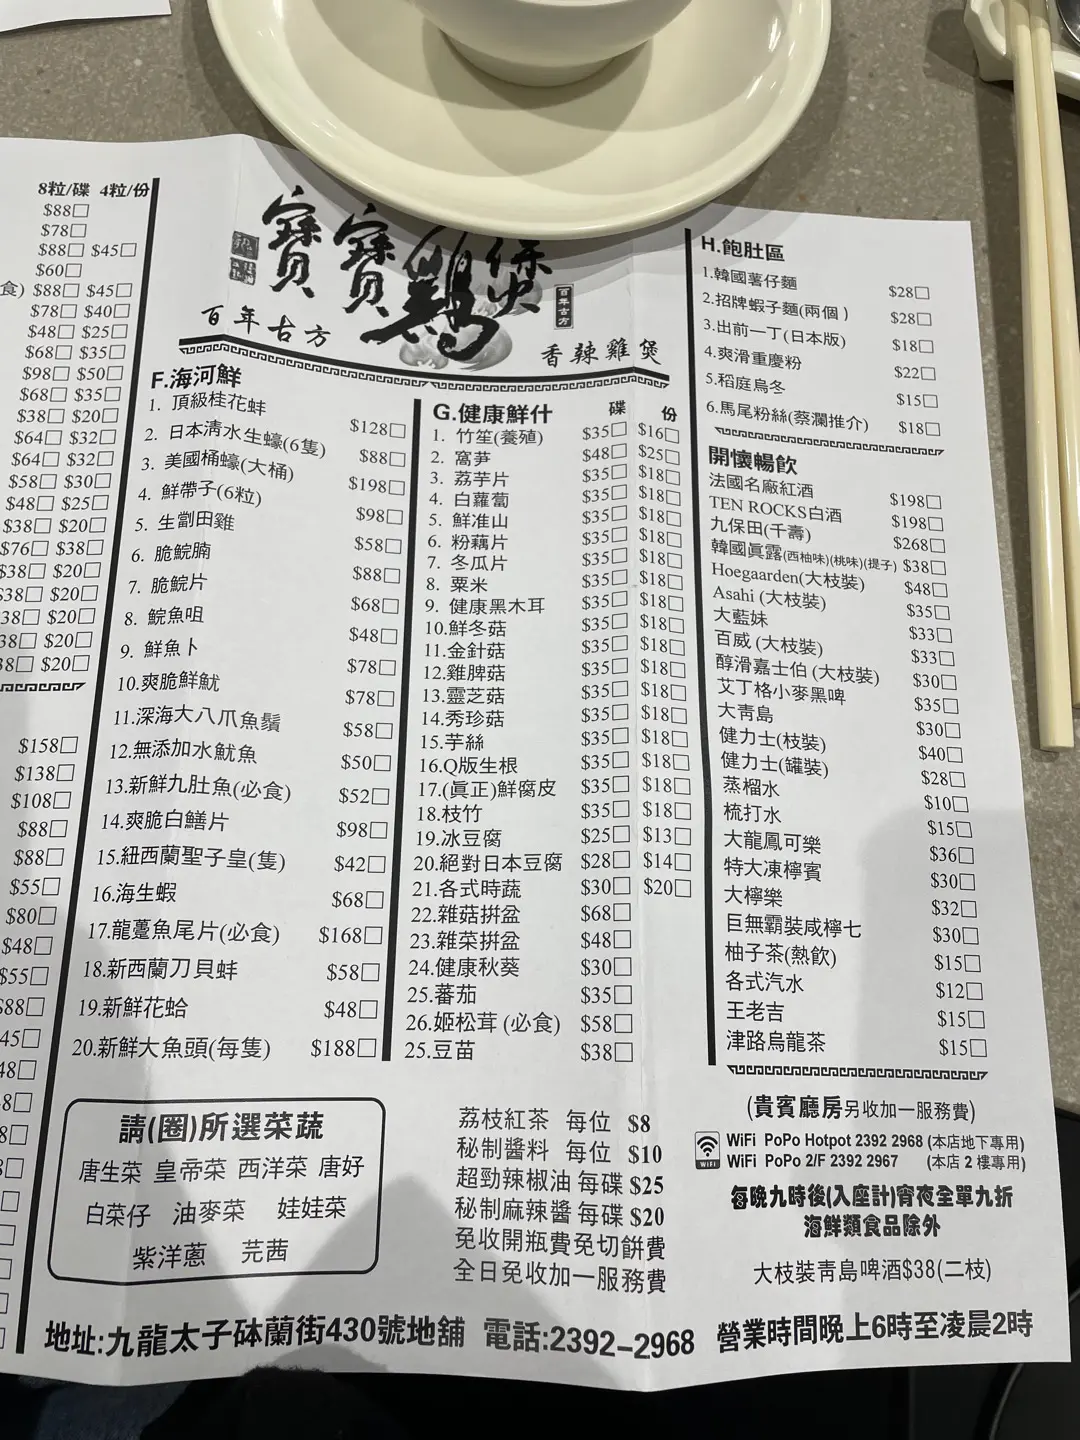 8粒/碟 4粒/份
$88□
$78□
$88□ $45□
$60□
食) $88□ $45□
$78□ $40□
$48□ $25□
$68□ $35□
$98□ $50□
$68□ $35□
$38□ $20□
$64□ $32□
$64□ $32□
$58□ $30□
$48□ $25□
$38□ $20□
$76□ $38□
$38□ $20□
$38□ $20□
38□ $20□
38□ $20□
38□ $20□
$158□
$138□
$108□
$88□
$88□
$55□
$80□
$48□
$55□
$88□
45□
48□
8□
8□
寶寶雞煲
百年古方
百年古方
香辣雞煲
F.海河鮮
1. 頂級桂花蚌 $128□
2. 日本清水生蠔(6隻) $88□
3. 美國桶蠔(大桶) $198□
4. 鮮帶子(6粒) $98□
5. 生劏田雞 $58□
6. 脆鯇腩 $88□
7. 脆鯇片 $68□
8. 鯇魚咀 $48□
9. 鮮魚卜 $78□
10.爽脆鮮魷 $78□
11.深海大八爪魚鬚 $58□
12.無添加水魷魚 $50□
13.新鮮九肚魚(必食) $52□
14.爽脆白鱔片 $98□
15.紐西蘭聖子皇(隻) $42□
16.海生蝦 $68□
17.龍躉魚尾片(必食) $168□
18.新西蘭刀貝蚌 $58□
19.新鮮花蛤 $48□
20.新鮮大魚頭(每隻) $188□
G.健康鮮什 碟 份
1. 竹笙(養殖) $35□ $16□
2. 窩笋 $48□ $25□
3. 荔芋片 $35□ $18□
4. 白蘿蔔 $35□ $18□
5. 鮮准山 $35□ $18□
6. 粉藕片 $35□ $18□
7. 冬瓜片 $35□ $18□
8. 粟米 $35□ $18□
9. 健康黑木耳 $35□ $18□
10.鮮冬菇 $35□ $18□
11.金針菇 $35□ $18□
12.雞脾菇 $35□ $18□
13.靈芝菇 $35□ $18□
14.秀珍菇 $35□ $18□
15.芋絲 $35□ $18□
16.Q版生根 $35□ $18□
17.(眞正)鮮腐皮 $35□ $18□
18.枝竹 $35□ $18□
19.冰豆腐 $25□ $13□
20.絕對日本豆腐 $28□ $14□
21.各式時蔬 $30□ $20□
22.雜菇拼盆 $68□
23.雜菜拼盆 $48□
24.健康秋葵 $30□
25.蕃茄 $35□
26.姬松茸(必食) $58□
25.豆苗 $38□
H.飽肚區
1.韓國薯仔麵 $28□
2.招牌蝦子麵(兩個) $28□
3.出前一丁(日本版) $18□
4.爽滑重慶粉 $22□
5.稻庭烏冬 $15□
6.馬尾粉絲(蔡瀾推介) $18□
開懷暢飲
法國名廠紅酒 $198□
TEN ROCKS白酒 $198□
九保田(千壽) $268□
韓國眞露(西柚味)(桃味)(提子) $38□
Hoegaarden(大枝裝) $48□
Asahi (大枝裝) $35□
大藍妹 $33□
百威 (大枝裝) $33□
醇滑嘉士伯 (大枝裝) $30□
艾丁格小麥黑啤 $35□
大青島 $30□
健力士(枝裝) $40□
健力士(罐裝) $28□
蒸榴水 $10□
梳打水 $15□
大龍鳳可樂 $36□
特大凍檸賓 $30□
大檸樂 $32□
巨無霸裝咸檸七 $30□
柚子茶(熱飲) $15□
各式汽水 $12□
王老吉 $15□
津路烏龍茶 $15□
請(圈)所選菜蔬
唐生菜 皇帝菜 西洋菜 唐好
白菜仔 油麥菜 娃娃菜
紫洋蔥 芫茜
荔枝紅茶 每位 $8
秘制醬料 每位 $10
超勁辣椒油 每碟 $25
秘制麻辣醬 每碟 $20
免收開瓶費免切餅費
全日免收加一服務費
(貴賓廳房另收加一服務費)
WiFi
WiFi PoPo Hotpot 2392 2968 (本店地下專用)
WiFi PoPo 2/F 2392 2967 (本店2樓專用)
每晚九時後(入座計)宵夜全單九折
海鮮類食品除外
大枝裝青島啤酒$38(二枝)
地址:九龍太子砵蘭街430號地舖 電話:2392-2968 營業時間晚上6時至凌晨2時